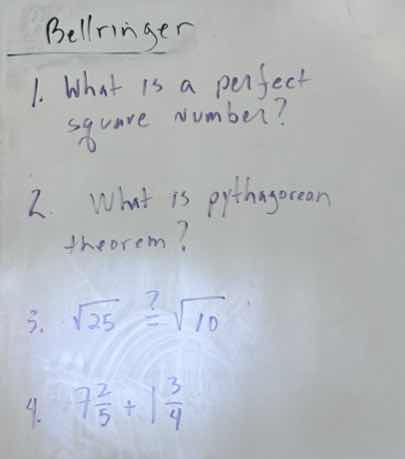 Bellringer
1. What is a perfect
square number?
2. What is pythagorean
theorem?
3. √25 ≟ √10
4. 7 2/5 + 1 3/4